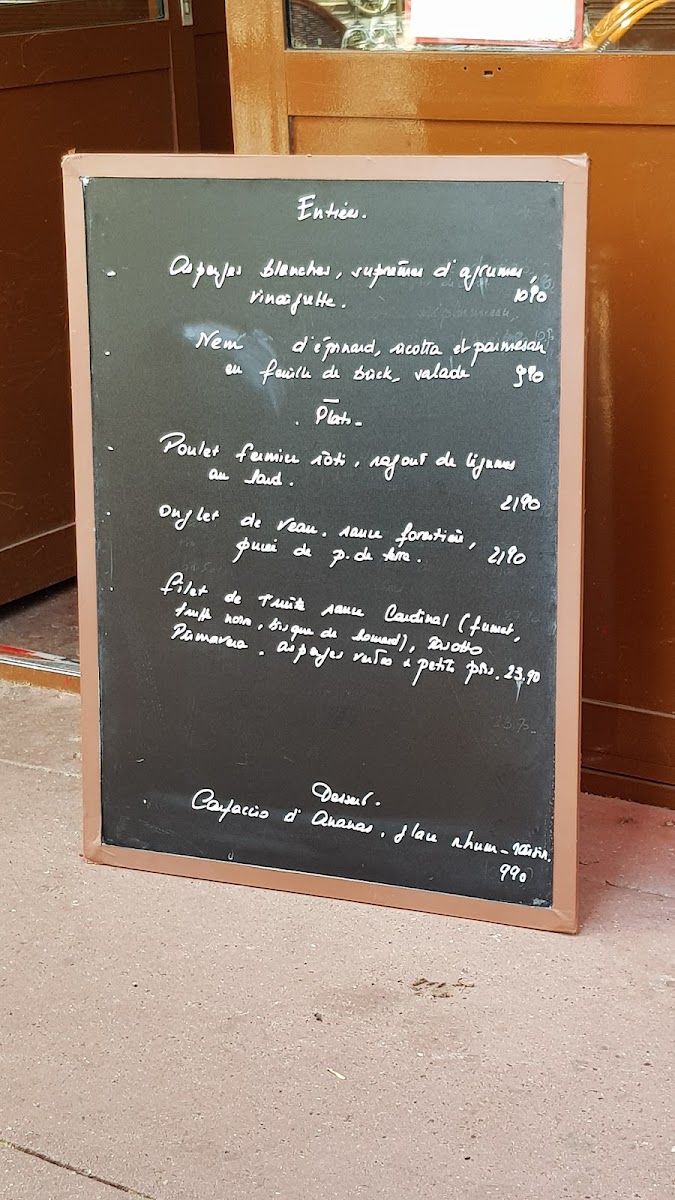 Entrées.
Asperges blanches, suprêmes d'agrumes,
vinaigrette. 10.90
Nem d'épinard, ricotta et parmesan
en feuille de brick, salade 9.90
Plats
Poulet fermier rôti, ragout de légumes
au lard.
21.90
Onglet de veau. sauce forestière,
purée de p. de terre. 21.90
Filet de Truite sauce Cardinal (fumet,
truffe noire, bisque de homard), Risotto
Primavera. asperges vertes & petits pois. 23.90
Dessert.
Carpaccio d'Ananas. glace rhum-raisin.
9.90